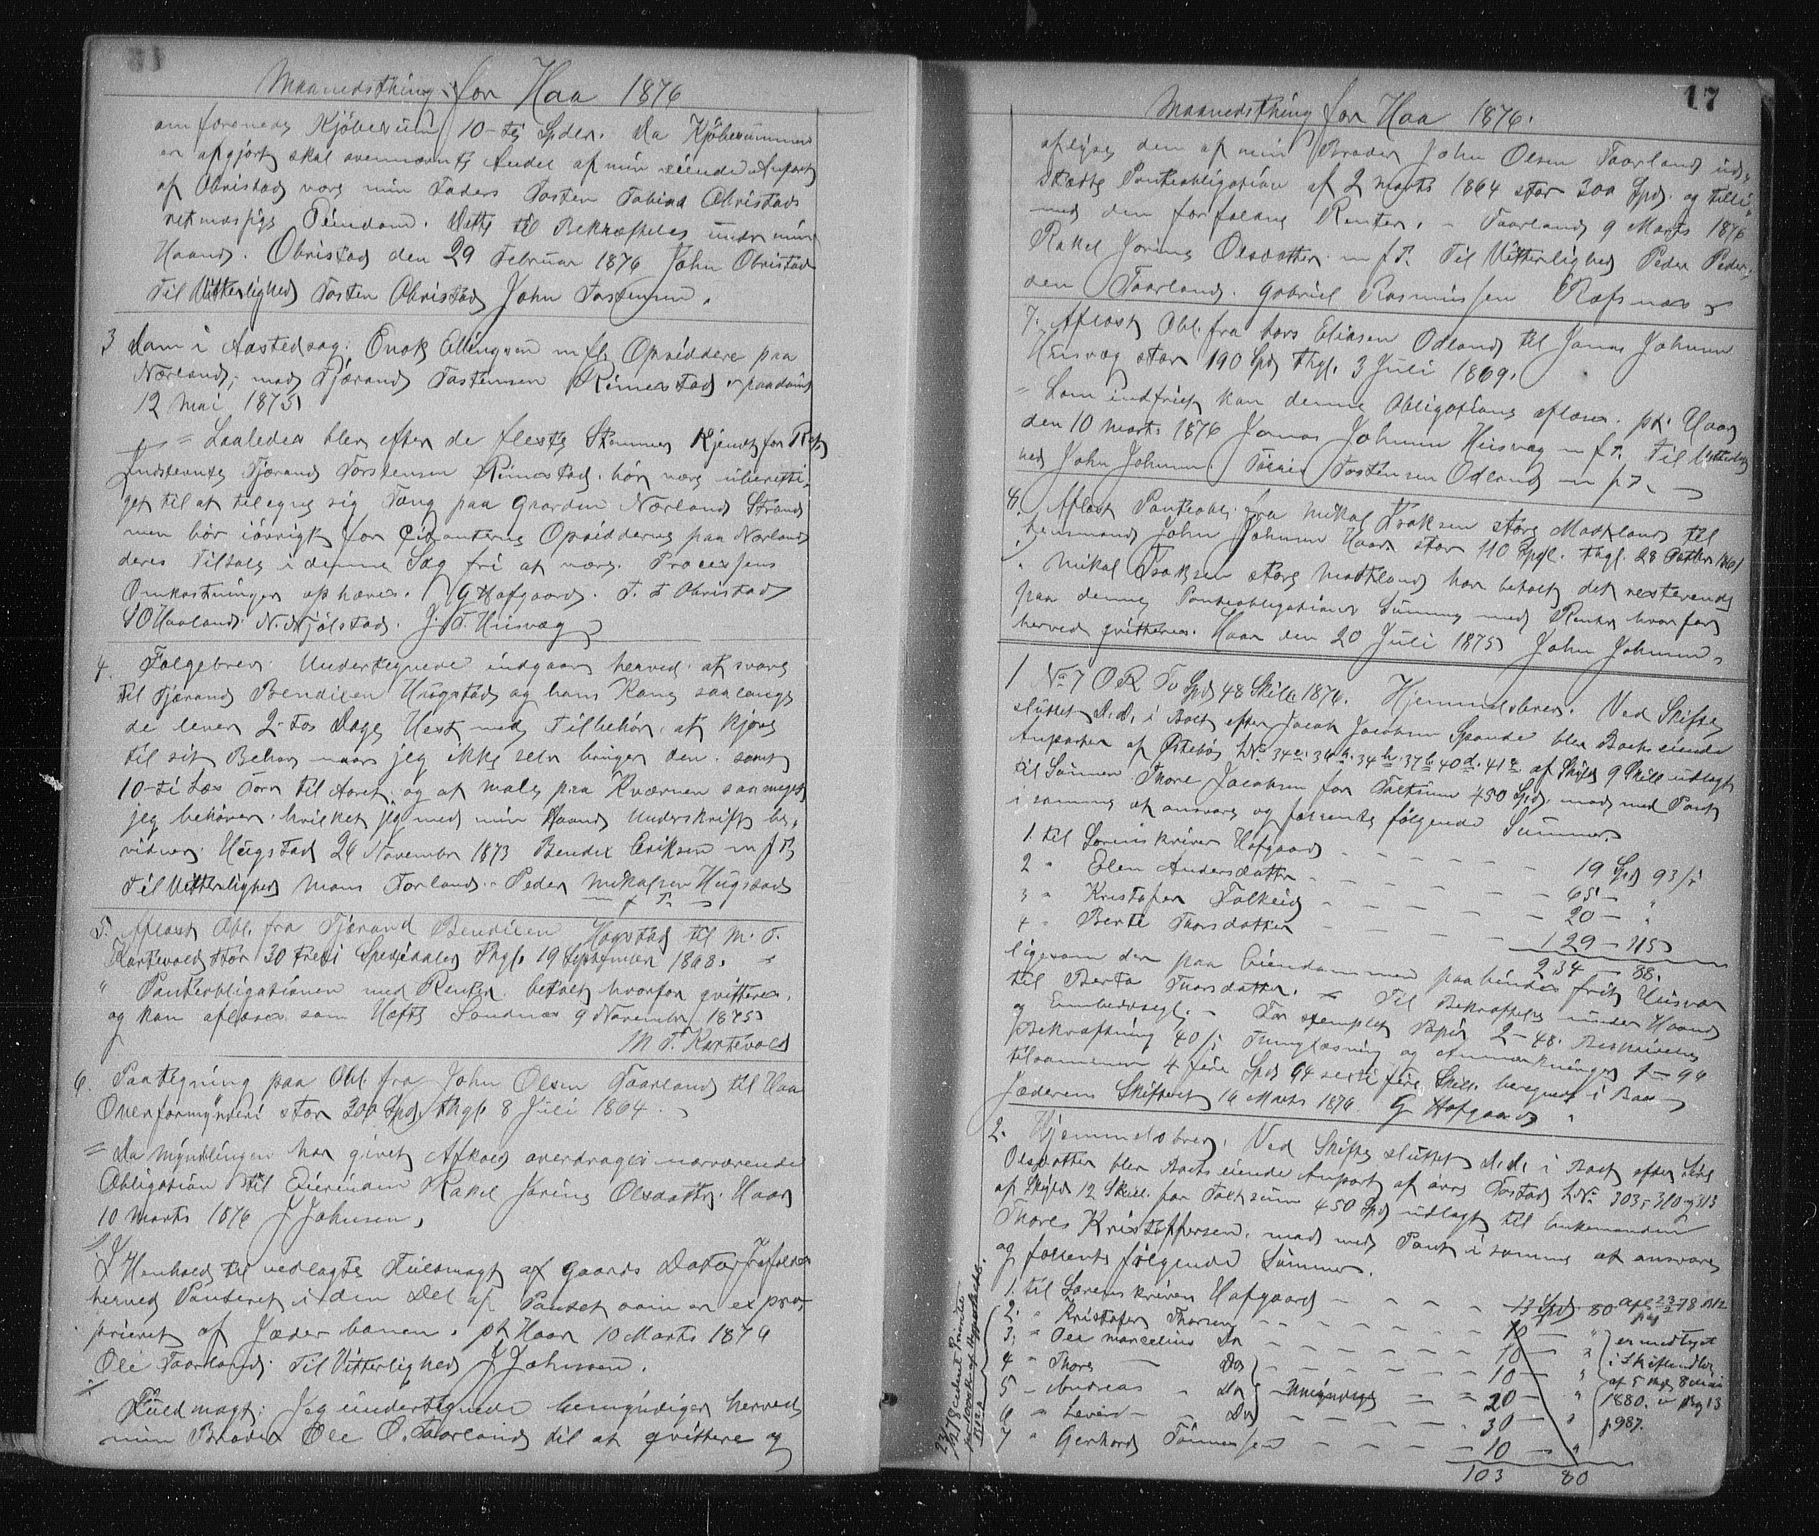 Maanedsthing for Haa 1876
omførende Kjøbesum 10-ti Spdlr. Da Kjøbesummen
er afgjort skal ovennævnte Andel af min eiende Anpart
af Obristad være min Faders Tosten Tobias Obristads
retmæssige Eiendom. Dette til Bekræftelse under min
Haand. Obristad den 29 Februar 1876 John Obristad
Til Vitterlighed Tosten Obristad John Tostensen.
3 Dom i Aastedsag: Enok Ellingsen m fl Opsiddere paa
Nærland, mod Tjærand Tostensen Rimestad, paadømt
12 Mai 1875
= Saaledes blev efter de fleste Stemmer Kjendt for Ret
Indstevnte Tjærand Torstensen Rimestad bør være uberetti-
get til at tilegne sig Tang paa Gaarden Nærland Strand
men bør iøvrigt for Citanterne Opsidderne paa Nærland
deres Tiltale i denne Sag fri at være. Processens
Omkostninger ophæves. G Hofgaard. T. T Obristad
S O Haaland. N. Njølstad. J. T. Husvæg
4. Følgebrev. Undertegnede indgaar herved at svare
til Tjærand Bendixen Hugstad og hans Kone saalænge
de lever 2-tos Dage Hest med Tilbehør, at kjøre
til sit Behov naar jeg ikke selv bruger den, samt
10-ti Læs Torv til Aaret, og at male paa Kværnen saameget
jeg behøver, hvilket jeg med min Haands Underskrift be-
vidner. Hugstad 26 November 1873 Bendix Eriksen m f P
Til Vitterlighed Mons Torland. Peder Mikalsen Hugstad
m f P.
5. Aflæst Obl. fra Tjærand Bendixen Hogstad til M. T.
Kartevold stor 30 treti Speciedaler Thgl. 19 September 1868.
" Panteobligationen med Renter betalt hvorfor qvitteres,
og kan aflæses som Hæfte Sandnæs 9 November 1875
M T. Kartevold
6. Paategning paa Obl. fra John Olsen Taarland til Haa
Overformynderi stor 300 Spd. Thgl. 8 Juli 1864.
= Da Myndlingen har givet Afkald overdrages nærværende
Obligation til Eierinden Rakel Jorine Olsdatter. Haar
10 Marts 1876 J Johnsen,
I Henhold til vedlagte Fuldmagt af Gaards Dato frafaldes
herved Panteret i den Del af Pantet som er expro-
prieret af Jæderbanen. pt Haar 10 Marts 1876
Ole Taarland. Til Vitterlighed J Johnsen.
Fuldmagt: Jeg undertegnede bemyndiger herved
min Broder Ole O. Taarland til at qvittere og
17
Maanedsthing for Haa 1876.
aflyse den af min Broder John Olsen Taarland ud-
stædte Panteobligation af 2 Marts 1864 stor 300 Spd. og tilli-
med den forfaldne Renter. - Taarland 9 Marts 1876
Rakel Jorine Olsdatter m f P. Til Vitterlighed Peder Peder-
sen Taarland. Gabriel Rasmussen Refsnæs
7. Aflæst Obl. fra Lars Eliasen Odland til Jonas Johnsen
Husvæg stor 190 Spd Thgl. 3 Juli 1869.
" Som indfriet kan denne Obligation aflæses. pt. Haar
den 10 Marts 1876 Jonas Johnsen Husvæg m f P. Til Vitterlig-
hed John Johnsen. Tostensen Odland m f P.
8. Aflæst Panteobl. fra Mikal Isaksen store Motland til
Lensmand John Johnsen Haar stor 110 Spd. Thgl. 28
Mikal Isaksen store Motland har betalt det resterende
paa denne Panteobligations Summa med Renter hvorfor
herved qvitteres. Haar den 20 Juli 1875 John Johnsen.
1 No 7 O R To Spd 48 Skill 1876. Hjemmelsbrev. Ved Skifte
sluttet d.d. i Boet efter Jacob Jacobsen Spande blev Boets eiende
Anparter af Østebø LNo 34 e. 36 h. 34 h. 37 b 40 d. 41 e af Skyld 9 Skill udlagt
til Sønnen Thore Jacobsen for Taltsum 450 Spd. mod med Pant
i samme at ansvare og forrente følgende Summer
1 til Sorenskriver Hofgaard - - - - 19 Spd 93 ß
2 " Elen Andersdatter - - - - - 65 - "
3 " Kristofer Folkeid - - - - - 20 - "
4 " Berte Thorsdatter - - - - - 129 - 115
234 - 88.
ligesom der paa Eiendommen paahviler frit Huusvær
til Berta Thorsdatter. - Til Bekræftelse under Haand
og Embedssegl. - For stemplet Papir 2-48. Beskrivelse
Bekræftning 40 ß Thinglæsning og Anmærkninger 1-96
tilsammen 4 fire Spd 64 sexti fire Skill. beregnet i Boet
Jæderens Skifteret 16 Marts 1876. G Hofgaard
2. Hjemmelsbrev. Ved Skifte sluttet d.d. i Boet efter
Olsdatter blev Boets eiende Anpart af øvre Tostad LNo 303, 310 og 313
af Skyld 12 Skill. for Taltsum 450 Spd udlagt til Enkemanden
Thores Kristoffersen, mod med Pant i samme at ansvare
og forrente følgende Summer.
1. til Sorenskriver Hofgaard - - - - 13 Spd 80 afl. 23/2 78 B12
2. " Kristofer Thoresen - - - - 10 - "
3. " Ole Marcelius Do - - - - 10 - " er indlyst
4 " Thore - Do - - - - 10 - " i Skiftudlæg
5 " Andreas - Do Umyndige - - 20 - " af 5
6 " Levere - Do - - - - 30 - " 1880. B13
7 " Gerhard Tønnesen - - - - 10 - " p987.
103 80